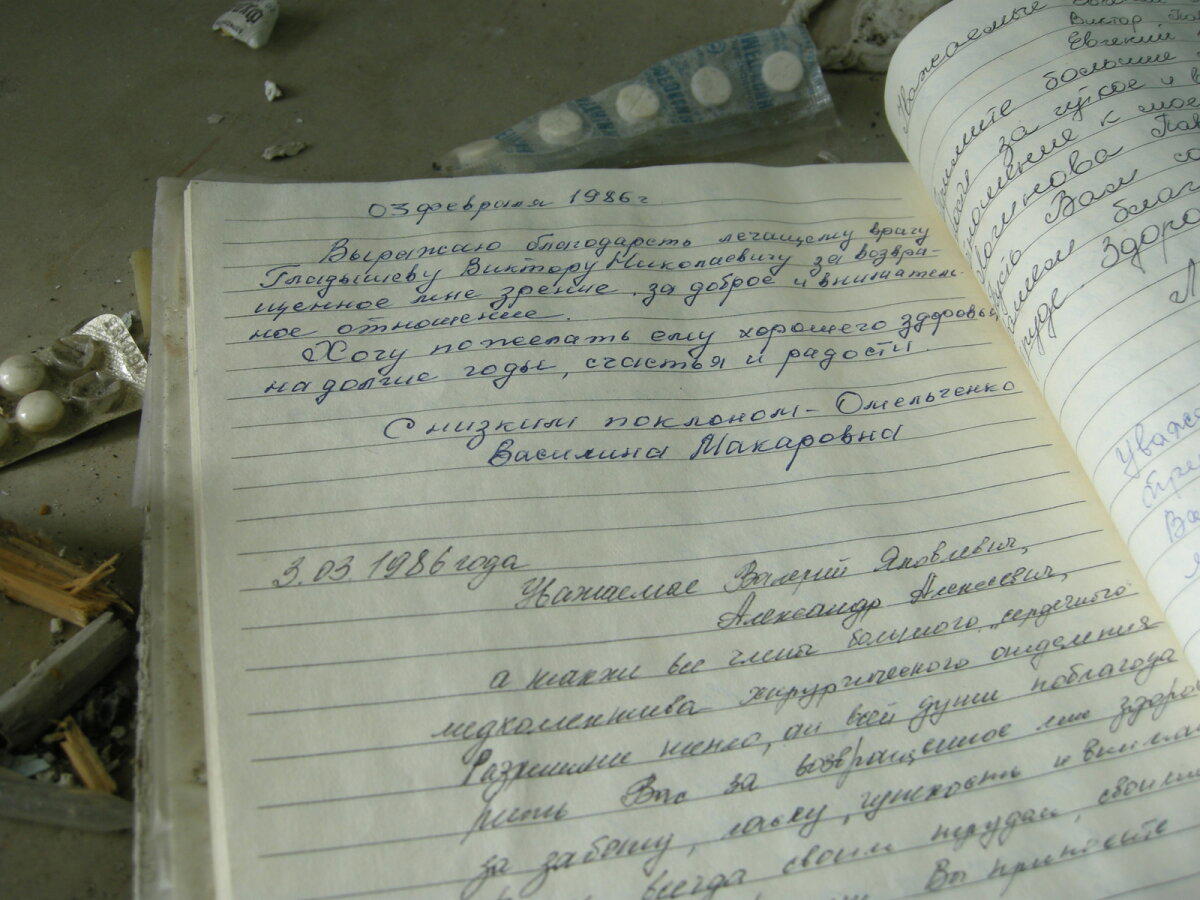 03 февраля 1986 г
Выражаю благодарсть лечащему врагу
Гладышеву Виктору Николаевичу за возвра-
щенное мне зрение, за доброе и вниматель-
ное отношение.
Хочу пожелать ему хорошего здоровья
на долгие годы, счастья и радости.
С низким поклоном - Омельченко
Василина Макаровна
3.03.1986 года
Уважаемые Валерий Яковлевич,
Александр Алексеевич,
а также все члены большого, сердечного
медколлектива хирургического отделения
Разрешите тепло, от всей души поблагода
рить Вас за возвращенное мне здоров
за заботу, ласку, чуткость и внима
всегда своим трудом, своим
Вы приносите
Уважаемые
Виктор
Евгений
большие
за чуткое и в
отношение к мое
Вам
благ
труде. Здоро
Уважа